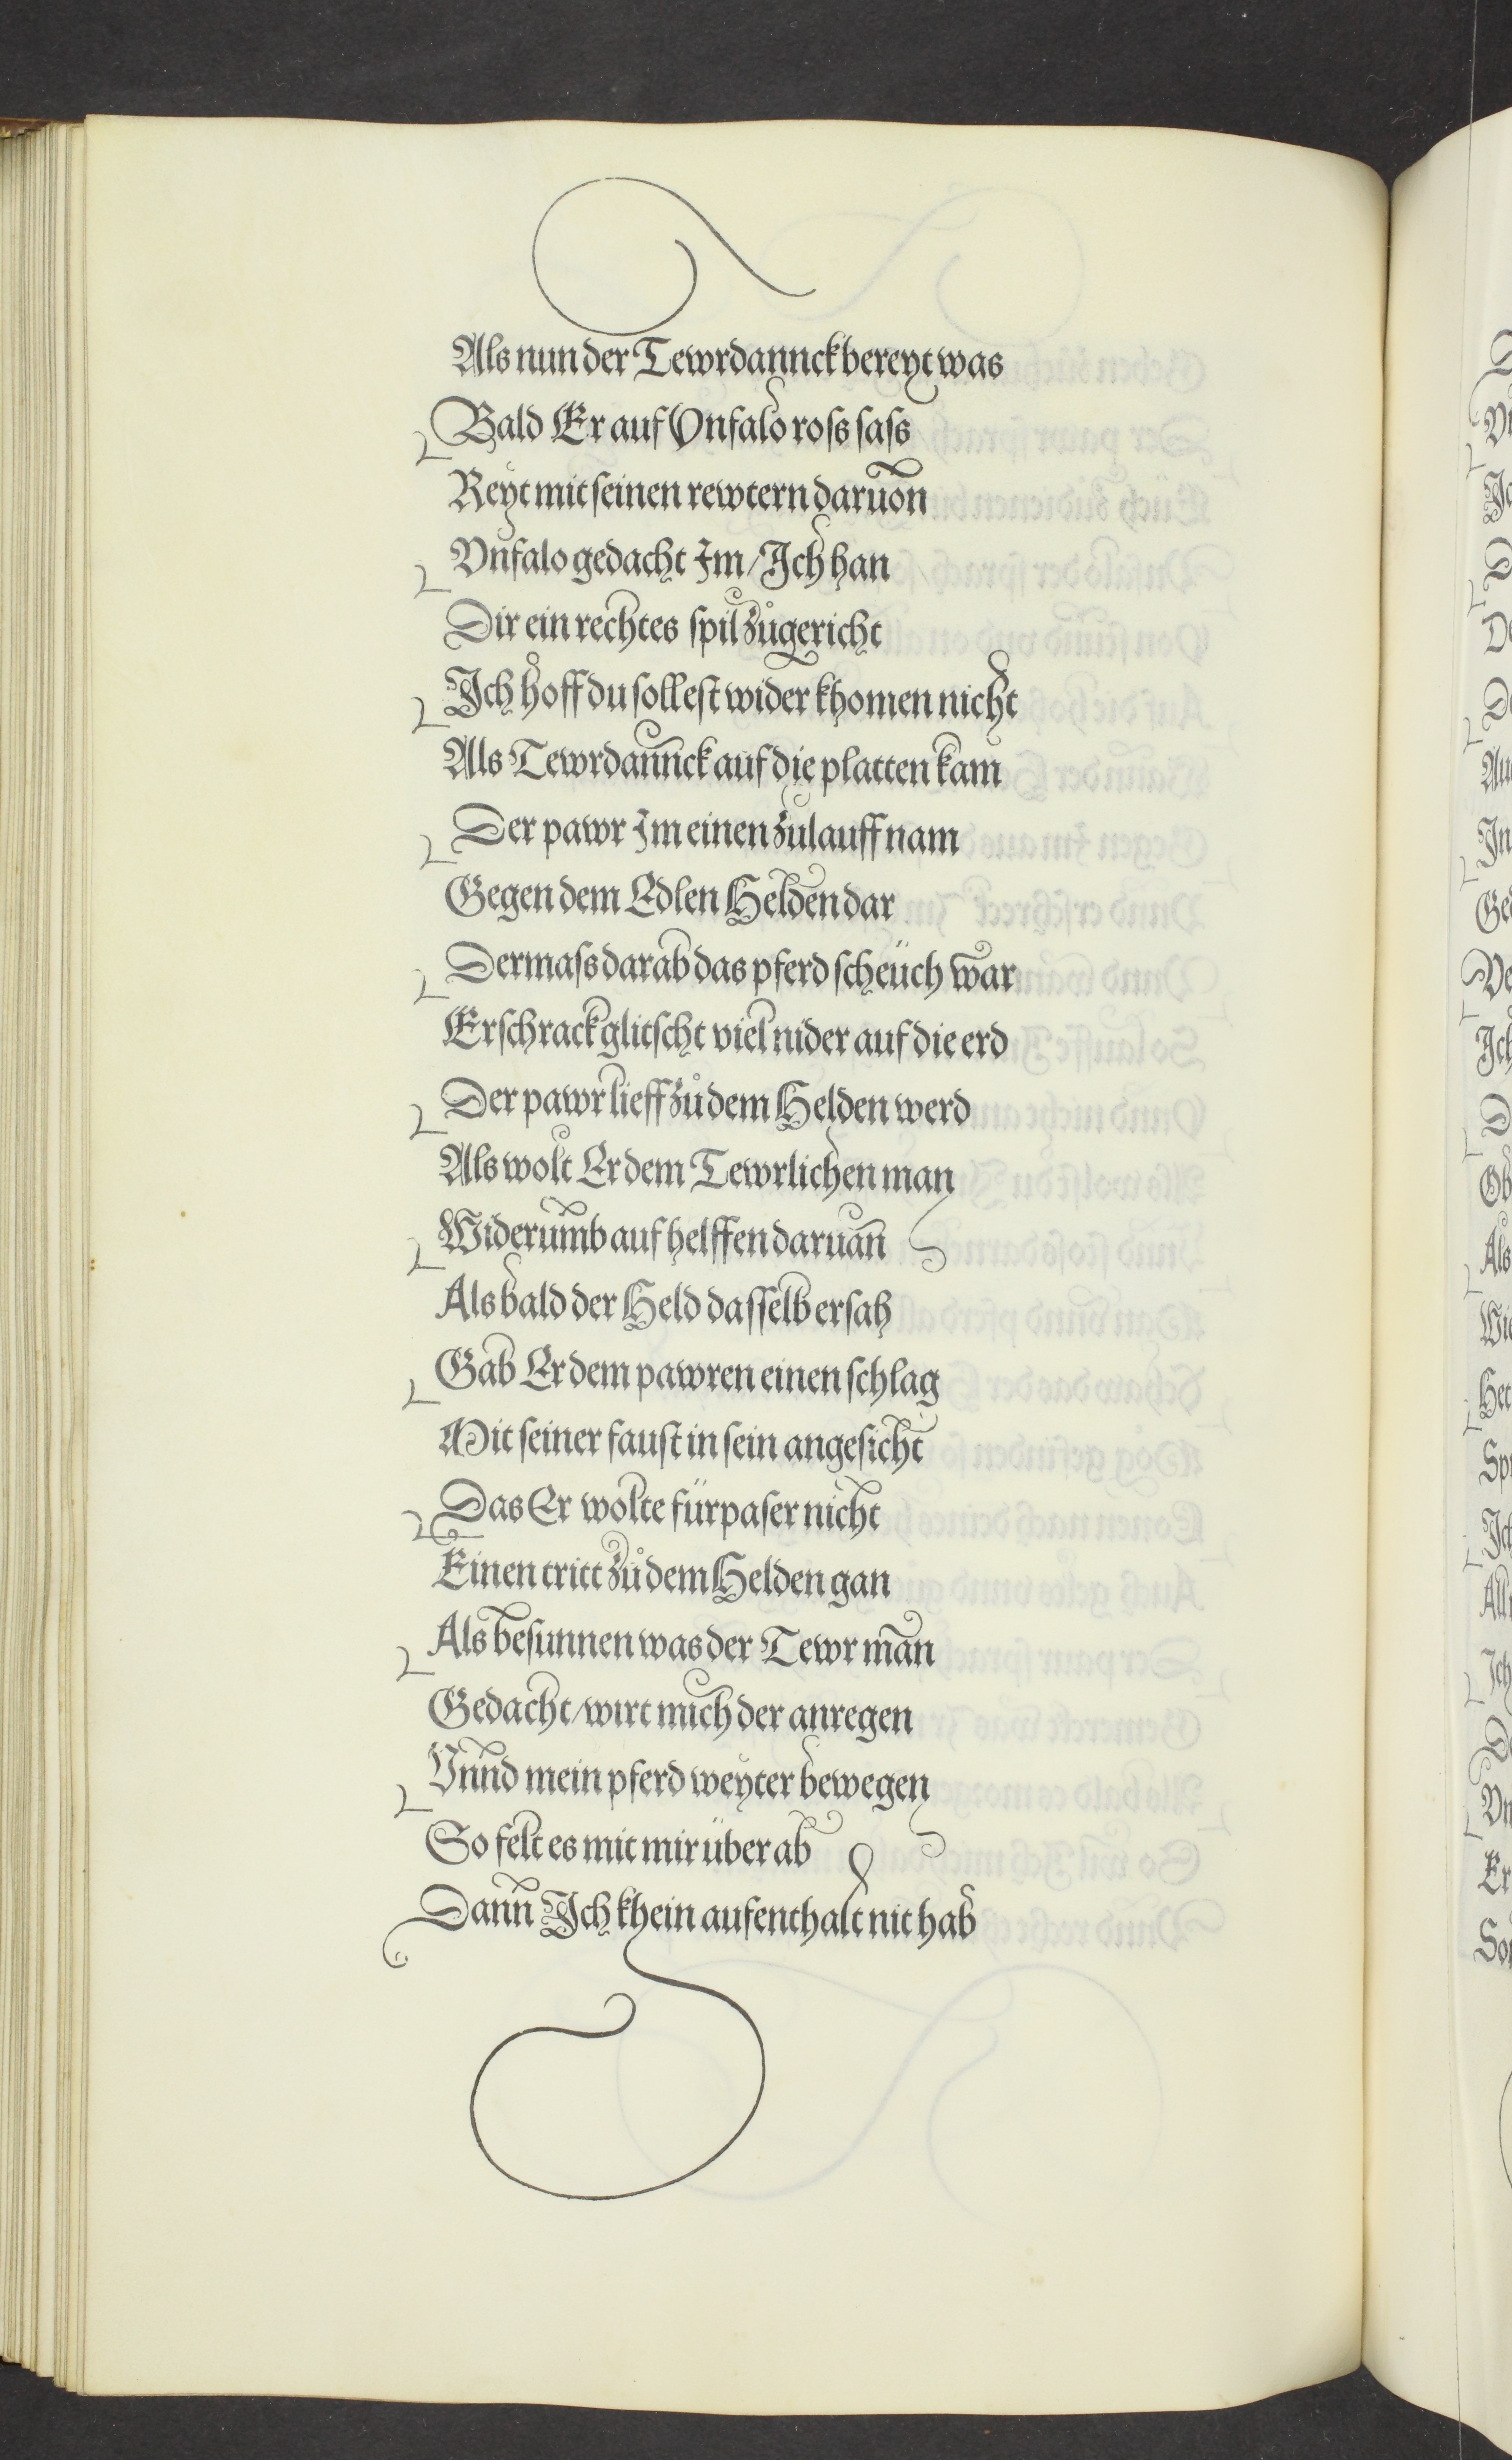 Als nun der Tewrdannck bereyt was
Bald Er auf Vnfalo roſs ſaſs
Reyt mit ſeinen rewtern daruon
Vnfalo gedacht Im / Ich han
Dir ein rechtes ſpil zůgericht
Ich hoff du ſolleſt wider khomen nicht
Als Tewrdannck auf die platten kam
Der pawr Im einen zulauff nam
Gegen dem Edlen Helden dar
Dermaſs darab das pferd ſcheüch war
Erſchrack glitſcht viel nider auf die erd
Der pawr lieff zů dem Helden werd
Als wolt Er dem Tewrlichen man
Widerumb auf helffen daruan
Als bald der Held daſſelb erſah
Gab Er dem pawren einen ſchlag
Mit ſeiner fauſt in ſein angeſicht
Das Er wolte fürpaſer nicht
Einen tritt zů dem Helden gan
Als beſunnen was der Tewr man
Gedacht / wirt mich der anregen
Vnnd mein pferd weyter bewegen
So felt es mit mir über ab
Dann Ich khein aufenthalt nit hab